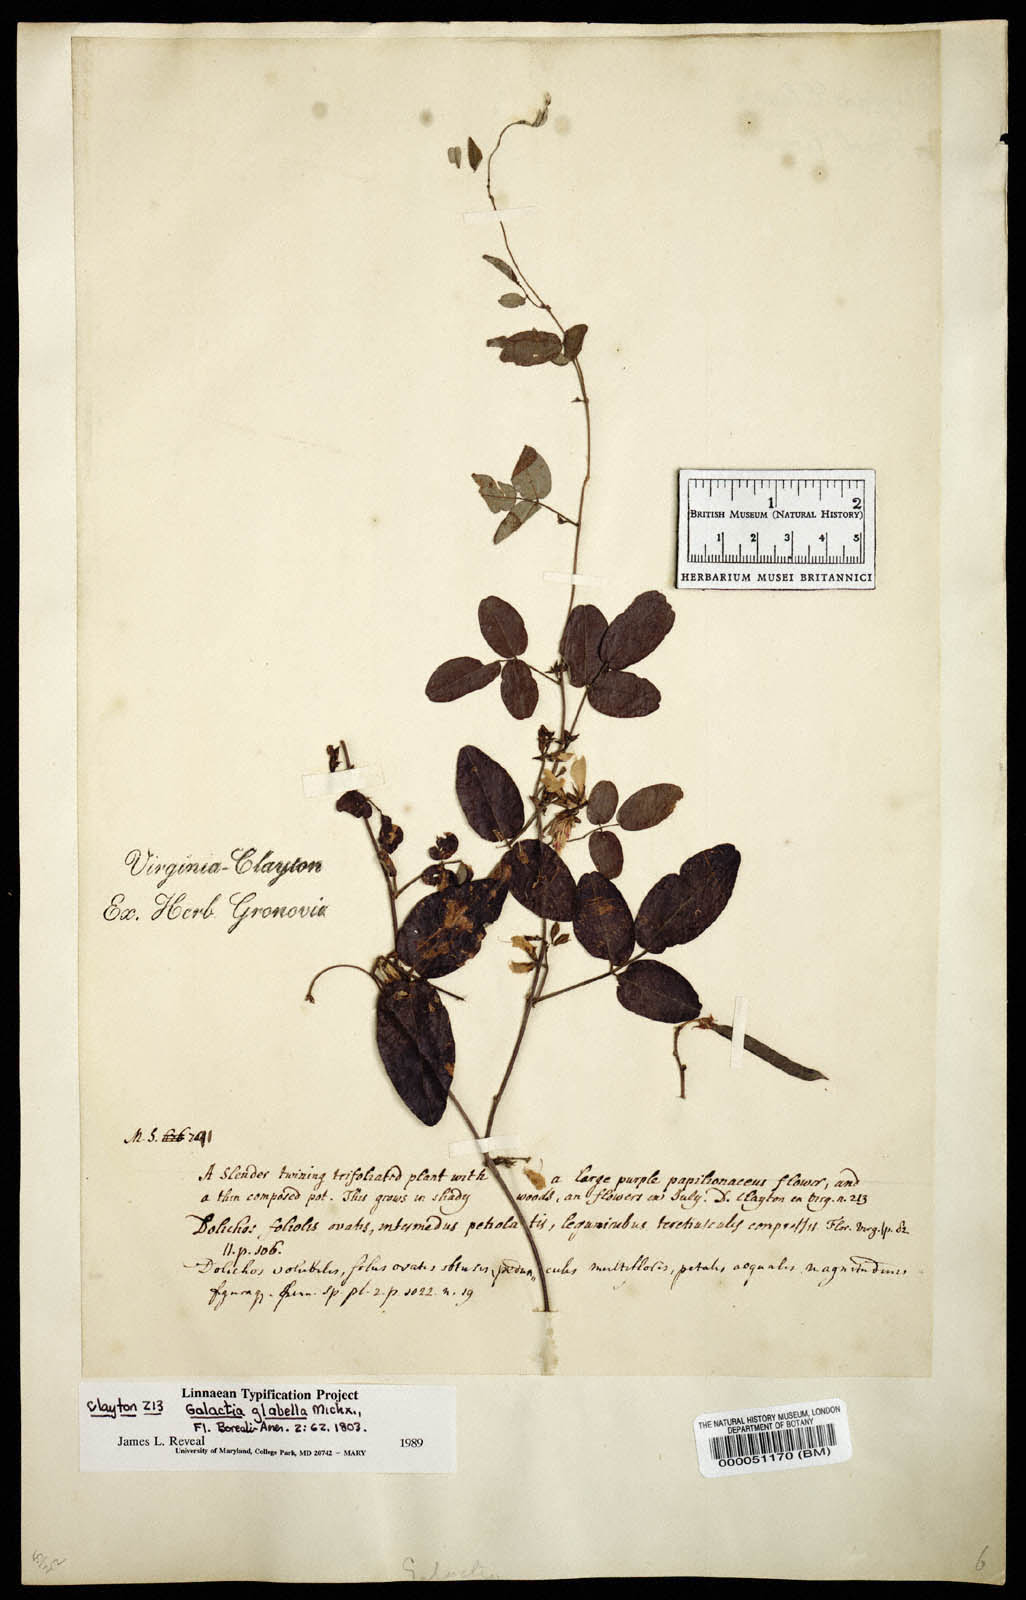 1 2
BRITISH MUSEUM (NATURAL HISTORY)
1 2 3 4 5
HERBARIUM MUSEI BRITANNICI
Virginia-Clayton
Ex. Herb Gronovia
M.S. 791
A Slender twining trifoliated plant with a large purple papilionaceus flower, and
a thin composed pot. This grows in shady woods, an flowers in July. D. Clayton en Virg. n. 213
Dolichos foliolis ovatis, intermedus petiolatis, leguminibus teretiusculis compressis Flor. Virg. p. 82
11. p. 106.
Dolichos volubilis, foliis ovatis obtusis, pedunculis multifloris, petalis aequalis magnitudinis
figuraq. Linn. Sp. pl. 2. p. 1022. n. 19
Linnaean Typification Project
Clayton 213 Galactia glabella Michx.,
Fl. Boreali-Amer. 2: 62. 1803.
James L. Reveal 1989
University of Maryland, College Park, MD 20742 – MARY
THE NATURAL HISTORY MUSEUM, LONDON
DEPARTMENT OF BOTANY
000051170 (BM)
Galactia
6